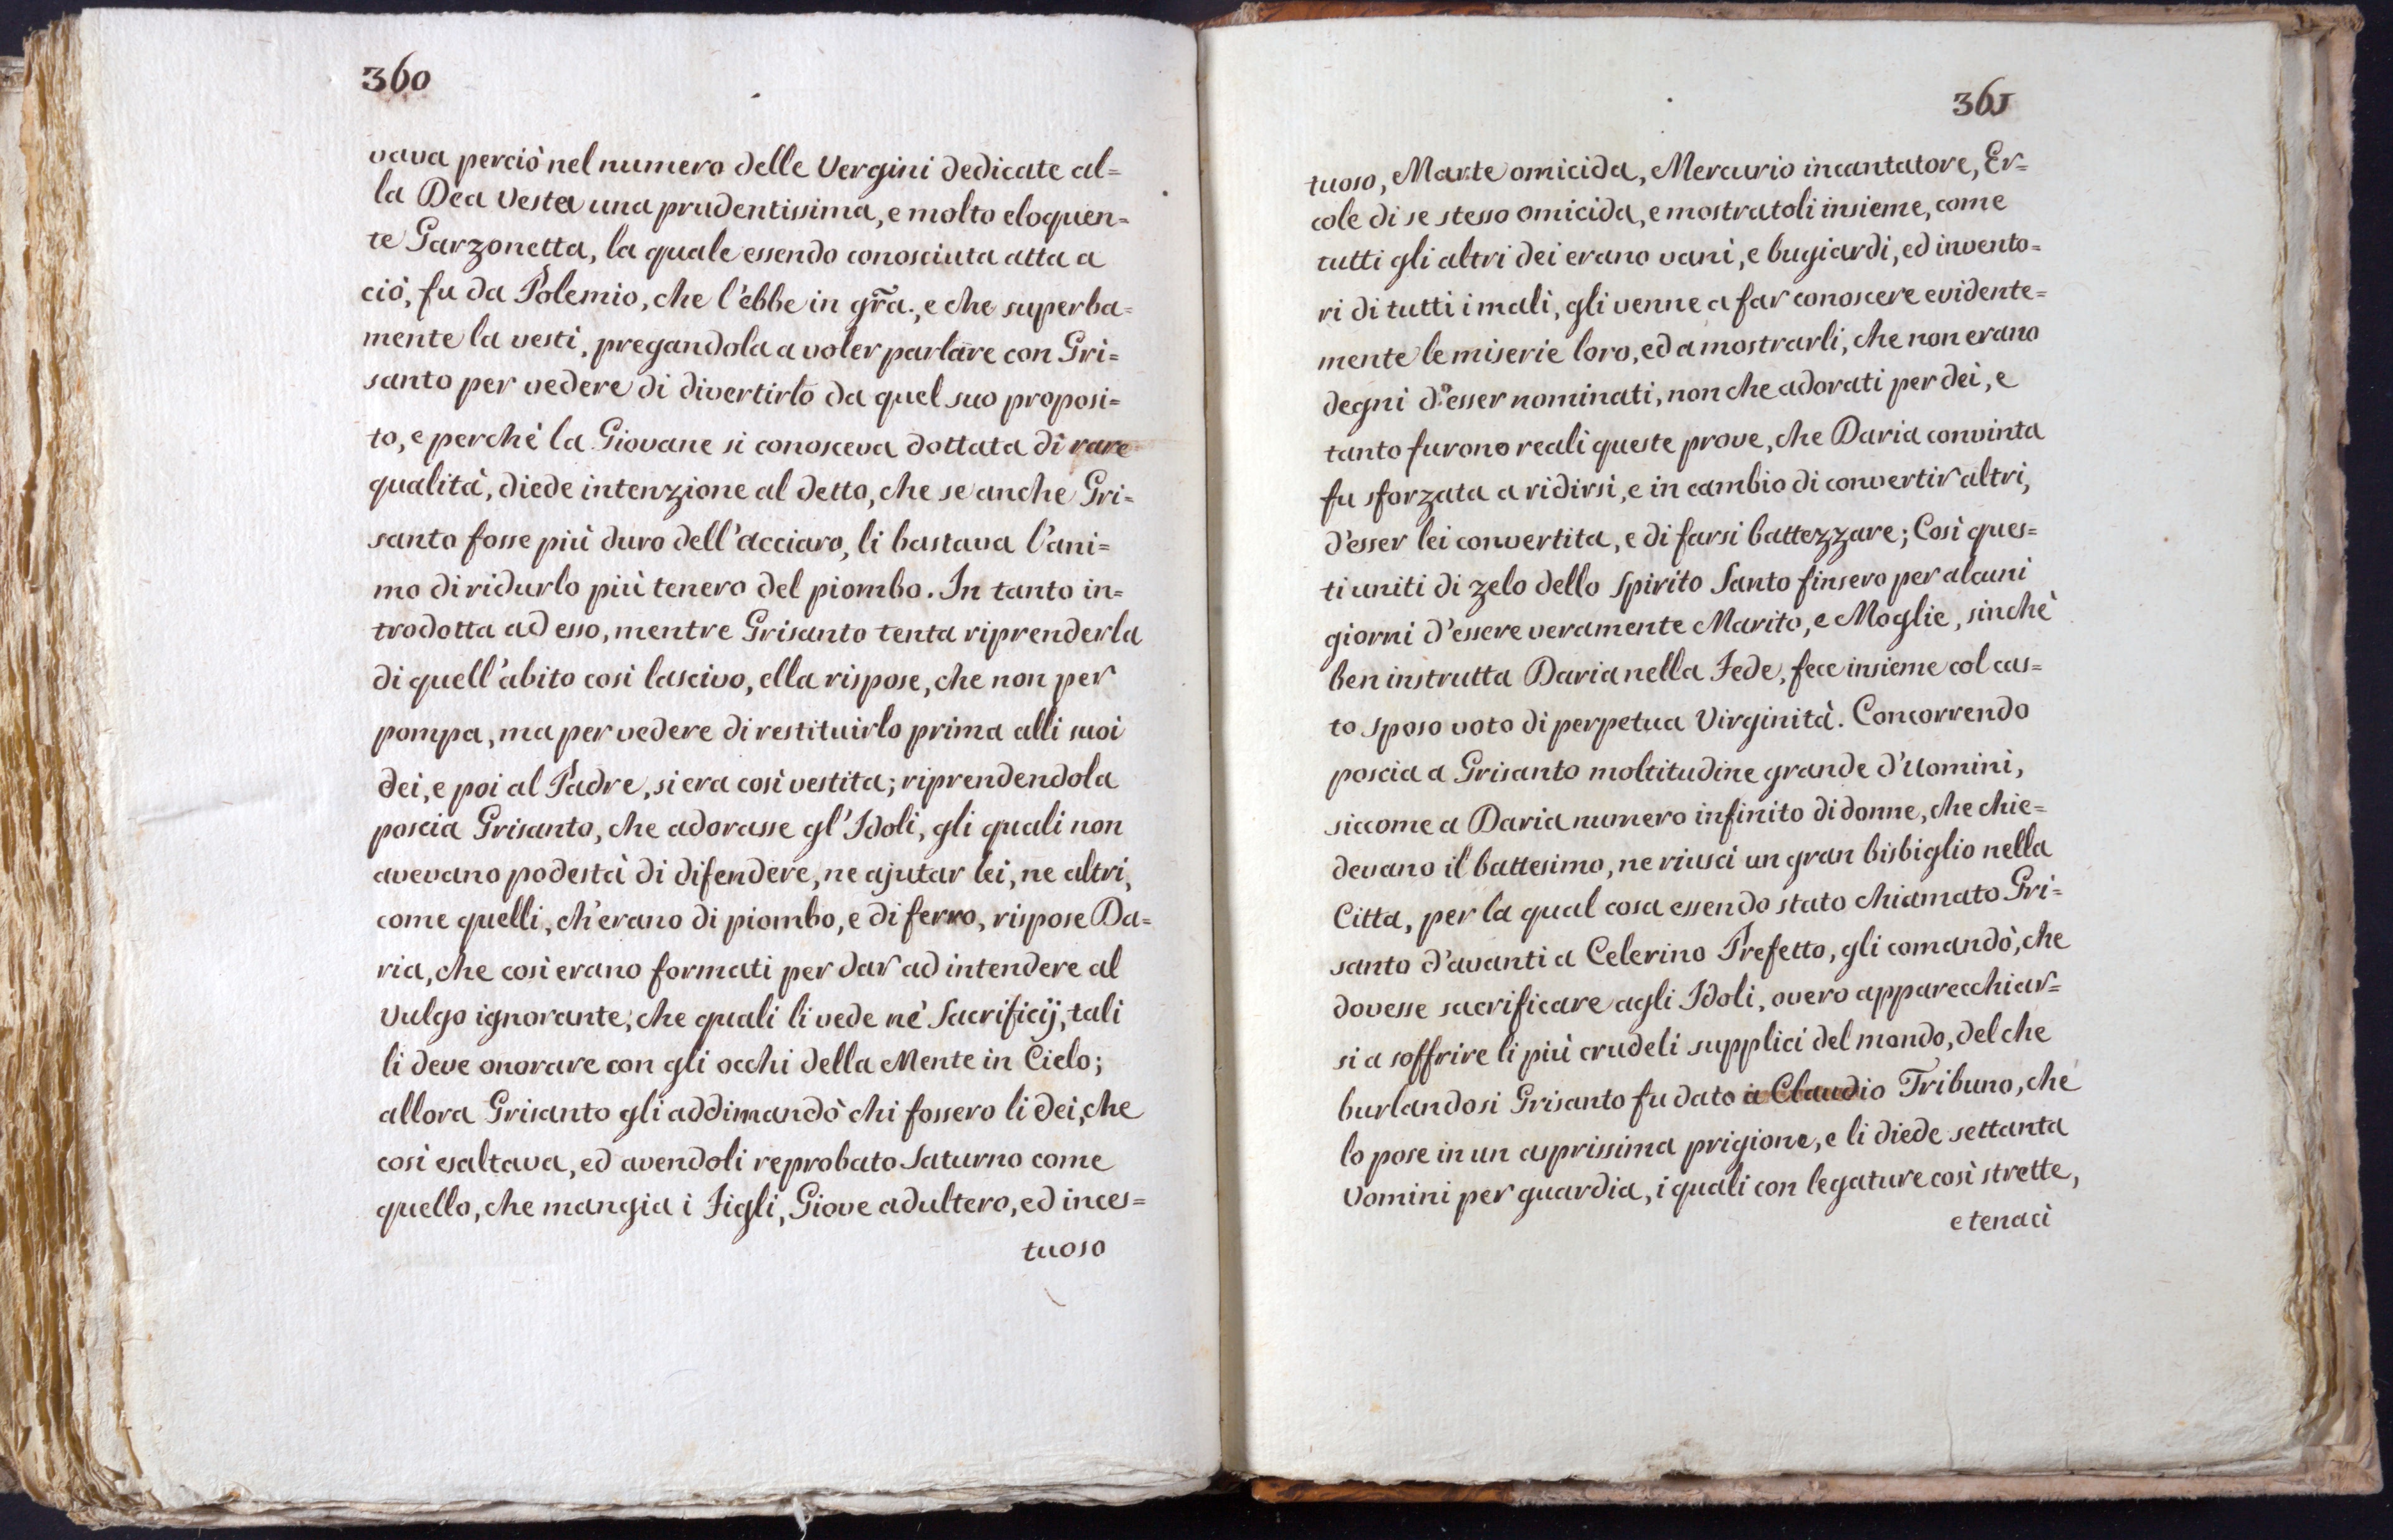 360
vava perciò nel numero delle Vergini dedicate al=
la Dea Vesta una prudentissima, e molto eloquen=
te Garzonetta, la quale essendo conosciuta atta a
ciò, fu da Polemio, che l'ebbe in gr̃a., e che superba=
mente la vesti, pregandola a voler parlare con Gri=
santo per vedere di divertirlo da quel suo proposi=
to, e perchè la Giovane si conosceva dottata di rare
qualità, diede intenzione al detto, che se anche Gri=
santo fosse più duro dell'acciaro, li bastava l'ani=
mo di ridurlo più tenero del piombo. In tanto in=
trodotta ad esso, mentre Grisanto tenta riprenderla
di quell'abito così lascivo, ella rispose, che non per
pompa, ma per vedere di restituirlo prima alli suoi
dei, e poi al Padre, si era così vestita; riprendendola
poscia Grisanto, che adorasse gl'Idoli, gli quali non
avevano podestà di difendere, ne ajutar lei, ne altri,
come quelli, ch'erano di piombo, e di ferro, rispose Da=
ria, che così erano formati per dar ad intendere al
Vulgo ignorante, che quali li vede nè Sacrificij, tali
li deve onorare con gli occhi della Mente in Cielo;
allora Grisanto gli addimandò chi fossero li dei, che
così esaltava, ed avendoli reprobato Saturno come
quello, che mangia i Figli, Giove adultero, ed inces=
tuoso
361
tuoso, Marte omicida, Mercurio incantatore, Er=
cole di se stesso omicida, e mostratoli insieme, come
tutti gli altri dei erano vani, e bugiardi, ed invento=
ri di tutti i mali, gli venne a far conoscere evidente=
mente le miserie loro, ed a mostrarli, che non erano
degni d'esser nominati, non che adorati per dei, e
tanto furono reali queste prove, che Daria convinta
fu sforzata a ridirsi, e in cambio di convertir altri,
d'esser lei convertita, e di farsi battezzare; Così ques=
ti uniti di zelo dello Spirito Santo finsero per alcuni
giorni d'essere veramente Marito, e Moglie, sinchè
ben instrutta Daria nella Fede, fece insieme col cas=
to sposo voto di perpetua Virginità. Concorrendo
poscia a Grisanto moltitudine grande d'Uomini,
siccome a Daria numero infinito di donne, che chie=
devano il battesimo, ne riuscì un gran bisbiglio nella
Citta, per la qual cosa essendo stato chiamato Gri=
santo d'avanti a Celerino Prefetto, gli comandò, che
dovesse sacrificare agli Idoli, overo apparecchiar=
si a soffrire li più crudeli supplici del mondo, del che
burlandosi Grisanto fu dato a Claudio Tribuno, che
lo pose in un asprissima prigione, e li diede settanta
Vomini per guardia, i quali con legature così strette,
e tenaci